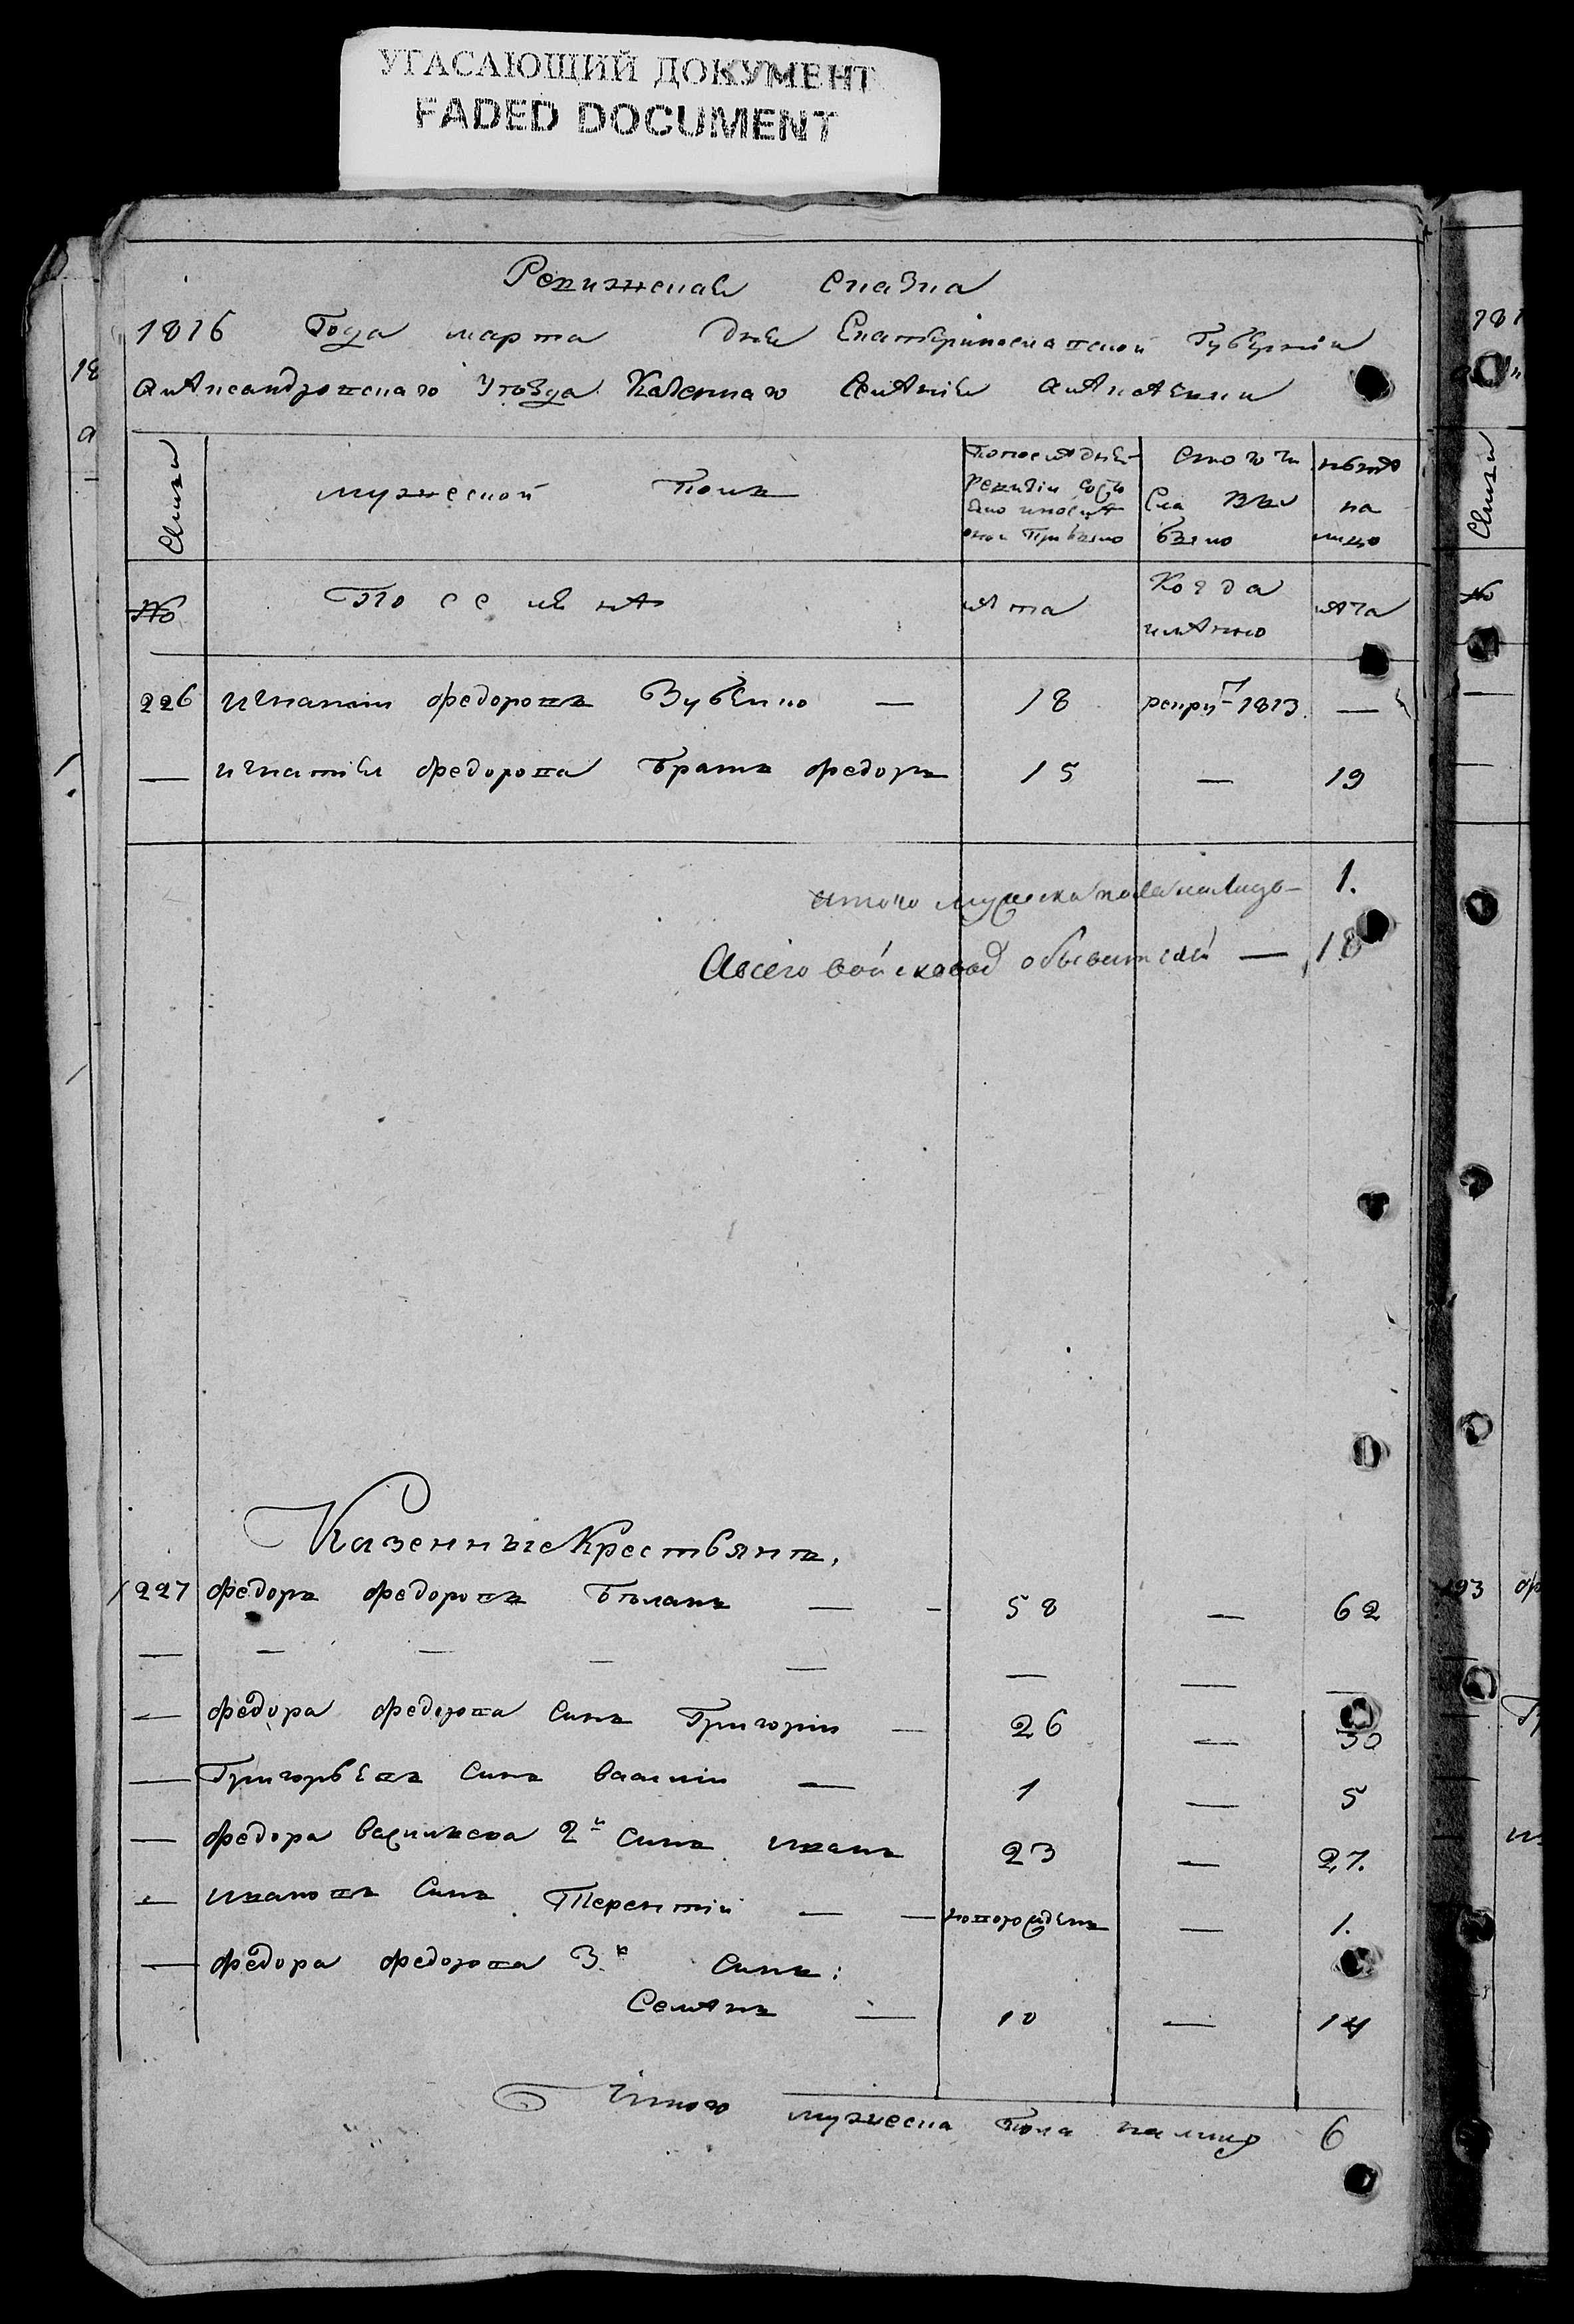 УГАСАЮЩИЙ ДОКУМЕНТ
FADED DOCUMENT
Ревижская сказка
1816 Года марта дня Екатеринославской Губернии
александровского Уезда Казенного Селения
Семьи
мужеской Полъ
По последней ревизии состояло и после оной прибыло
ис того числа выбыло
ныне на лицо
№
лета
Когда имянно
лета
226 игнатий федоровъ Зубенко — 18 рекрут 1813. —
— игнатия федорова братъ федоръ 15 — 19
итого мужеска пола налицо — 1.
А всего войсковых обывателей — 18
Казенные Крестьяне.
227 федоръ федоровъ — - 58 — 62
— — — — — — — —
— федора федорова синъ Григорий — 26 — 30
— Григорьевъ синъ василий — 1 — 5
— федора 2й синъ иванъ 23 — 27.
— ивановъ синъ Терентий — — новорожденъ — 1.
— федора федорова 3й синъ:
Семенъ — 10 — 14
Итого мужеска пола налицо 6